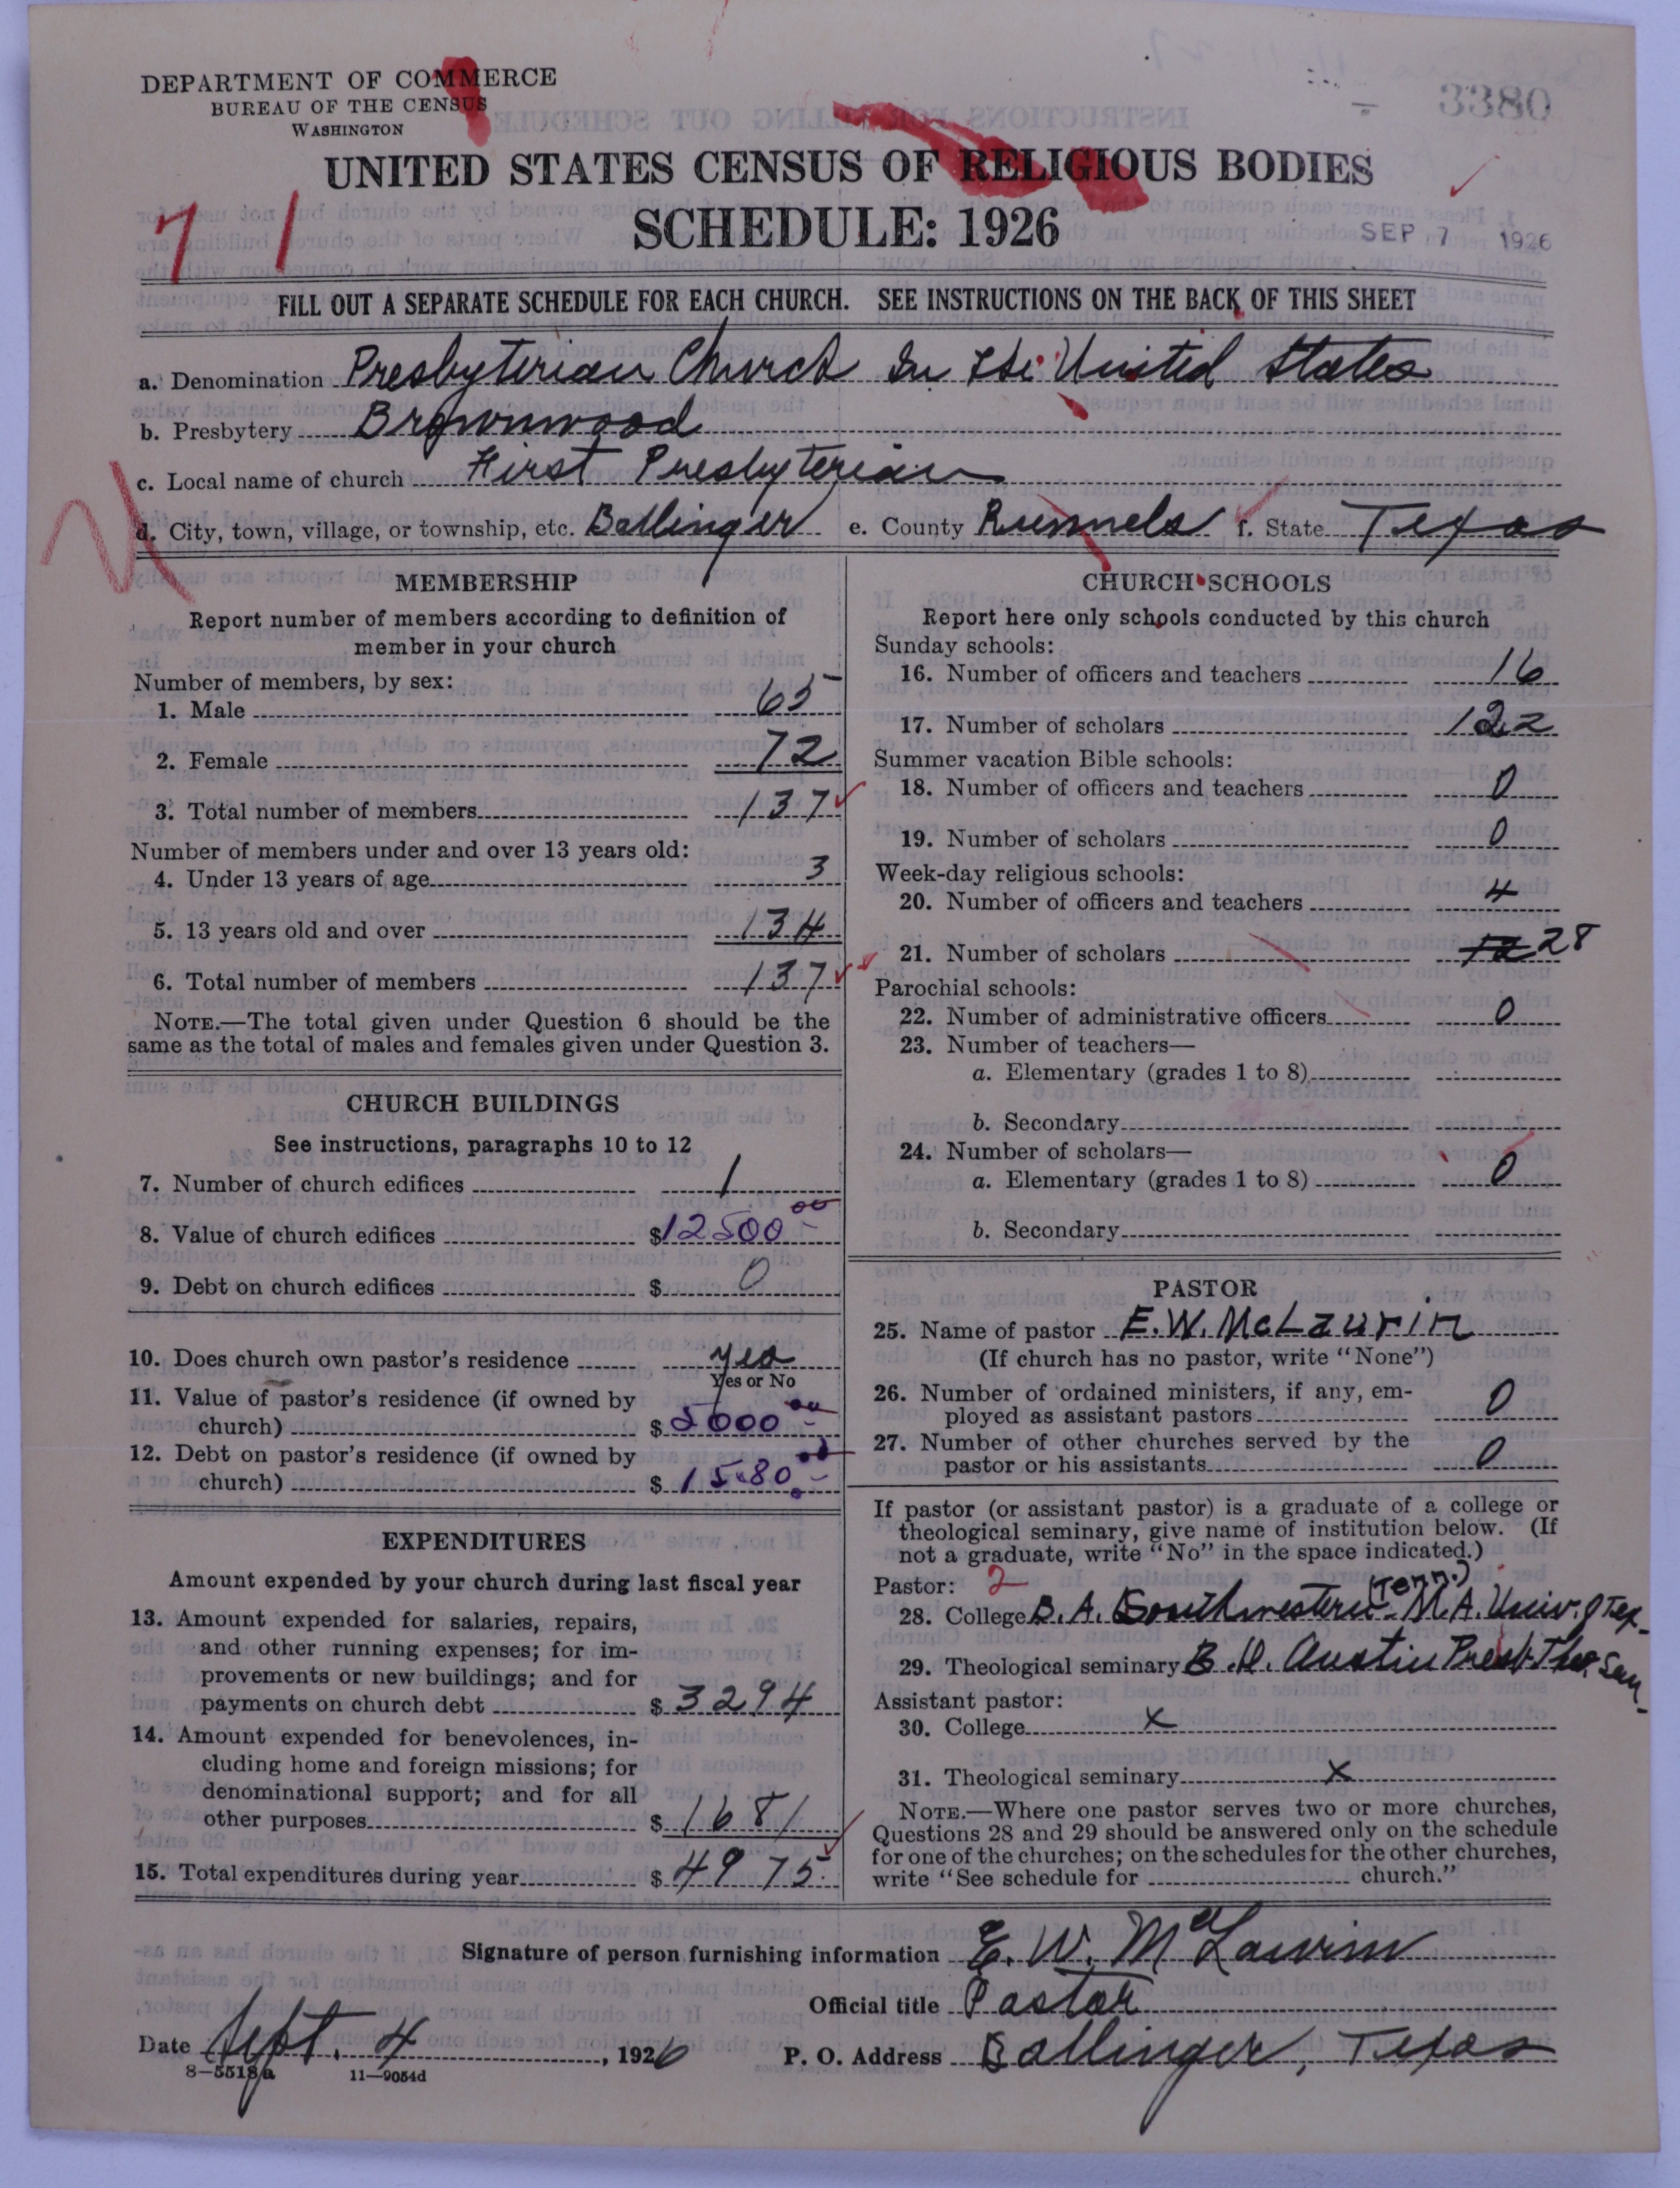 DEPARTMENT OF COMMERCE
BUREAU OF THE CENSUS
WASHINGTON
3380
UNITED STATES CENSUS OF RELIGIOUS BODIES
SCHEDULE: 1926
SEP 7 1926
7 1
FILL OUT A SEPARATE SCHEDULE FOR EACH CHURCH. SEE INSTRUCTIONS ON THE BACK OF THIS SHEET
a. Denomination Presbyterian Church In the United States
b. Presbytery Brownwood
c. Local name of church First Presbyterian
d. City, town, village, or township, etc. Ballinger e. County Runnels f. State Texas
MEMBERSHIP
Report number of members according to definition of
member in your church
Number of members, by sex:
1. Male 65
2. Female 72
3. Total number of members 137
Number of members under and over 13 years old:
4. Under 13 years of age 3
5. 13 years old and over 134
6. Total number of members 137
NOTE.—The total given under Question 6 should be the
same as the total of males and females given under Question 3.
CHURCH BUILDINGS
See instructions, paragraphs 10 to 12
7. Number of church edifices 1
8. Value of church edifices $12500 00
9. Debt on church edifices $ 0
10. Does church own pastor's residence yes
Yes or No
11. Value of pastor's residence (if owned by
church) $5000 00
12. Debt on pastor's residence (if owned by
church) $1580.00
EXPENDITURES
Amount expended by your church during last fiscal year
13. Amount expended for salaries, repairs,
and other running expenses; for im-
provements or new buildings; and for
payments on church debt $3294
14. Amount expended for benevolences, in-
cluding home and foreign missions; for
denominational support; and for all
other purposes $1681
15. Total expenditures during year $4975
CHURCH SCHOOLS
Report here only schools conducted by this church
Sunday schools:
16. Number of officers and teachers 16
17. Number of scholars 122
Summer vacation Bible schools:
18. Number of officers and teachers 0
19. Number of scholars 0
Week-day religious schools:
20. Number of officers and teachers 4
21. Number of scholars 28
Parochial schools:
22. Number of administrative officers 0
23. Number of teachers—
a. Elementary (grades 1 to 8)
b. Secondary
24. Number of scholars—
a. Elementary (grades 1 to 8) 0
b. Secondary
PASTOR
25. Name of pastor E.W. McLaurin
(If church has no pastor, write "None")
26. Number of ordained ministers, if any, em-
ployed as assistant pastors 0
27. Number of other churches served by the
pastor or his assistants 0
If pastor (or assistant pastor) is a graduate of a college or
theological seminary, give name of institution below. (If
not a graduate, write "No" in the space indicated.)
Pastor: 2
28. College B.A. Southwestern (Tenn.) - M.A. Univ. of Tex.
29. Theological seminary B.D. Austin Presb. Theo. Sem.
Assistant pastor:
30. College x
31. Theological seminary x
NOTE.—Where one pastor serves two or more churches,
Questions 28 and 29 should be answered only on the schedule
for one of the churches; on the schedules for the other churches,
write "See schedule for church."
Signature of person furnishing information E. W. McLaurin
Official title Pastor
Date Sept. 4, 1926 P. O. Address Ballinger, Texas
8—5518a 11—9054d